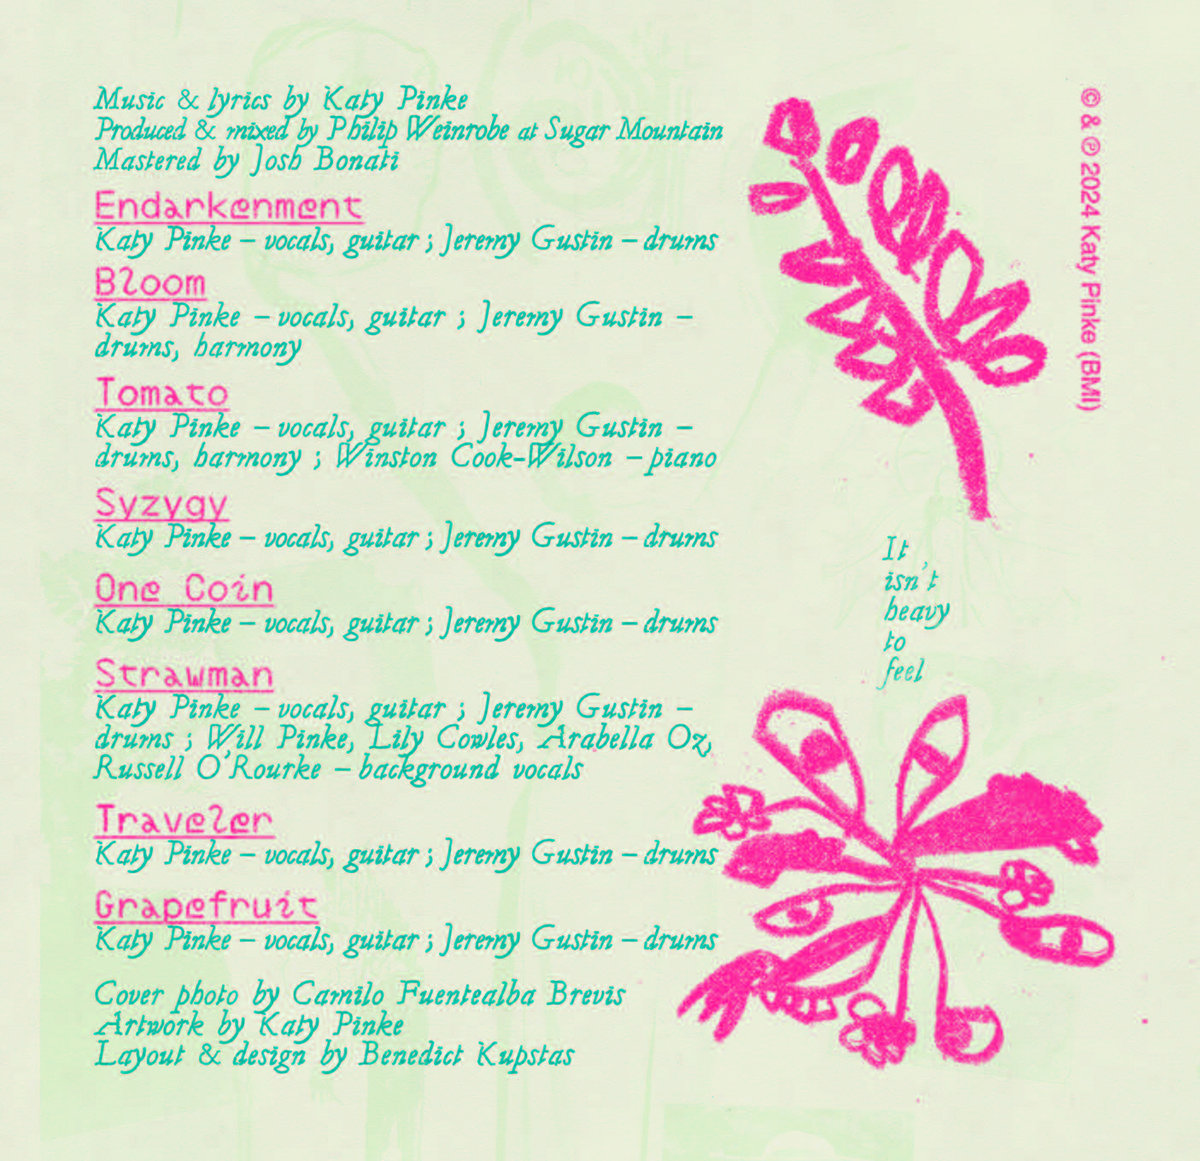 Music & lyrics by Katy Pinke
Produced & mixed by Philip Weinrobe at Sugar Mountain
Mastered by Josh Bonati
Endarkenment
Katy Pinke – vocals, guitar ; Jeremy Gustin – drums
Bloom
Katy Pinke – vocals, guitar ; Jeremy Gustin –
drums, harmony
Tomato
Katy Pinke – vocals, guitar ; Jeremy Gustin –
drums, harmony ; Winston Cook-Wilson – piano
Syzygy
Katy Pinke – vocals, guitar ; Jeremy Gustin – drums
One Coin
Katy Pinke – vocals, guitar ; Jeremy Gustin – drums
Strawman
Katy Pinke – vocals, guitar ; Jeremy Gustin –
drums ; Will Pinke, Lily Cowles, Arabella Oz,
Russell O'Rourke – background vocals
Traveler
Katy Pinke – vocals, guitar ; Jeremy Gustin – drums
Grapefruit
Katy Pinke – vocals, guitar ; Jeremy Gustin – drums
Cover photo by Camilo Fuentealba Brevis
Artwork by Katy Pinke
Layout & design by Benedict Kupstas
© & ℗ 2024 Katy Pinke (BMI)
It
isn't
heavy
to
feel